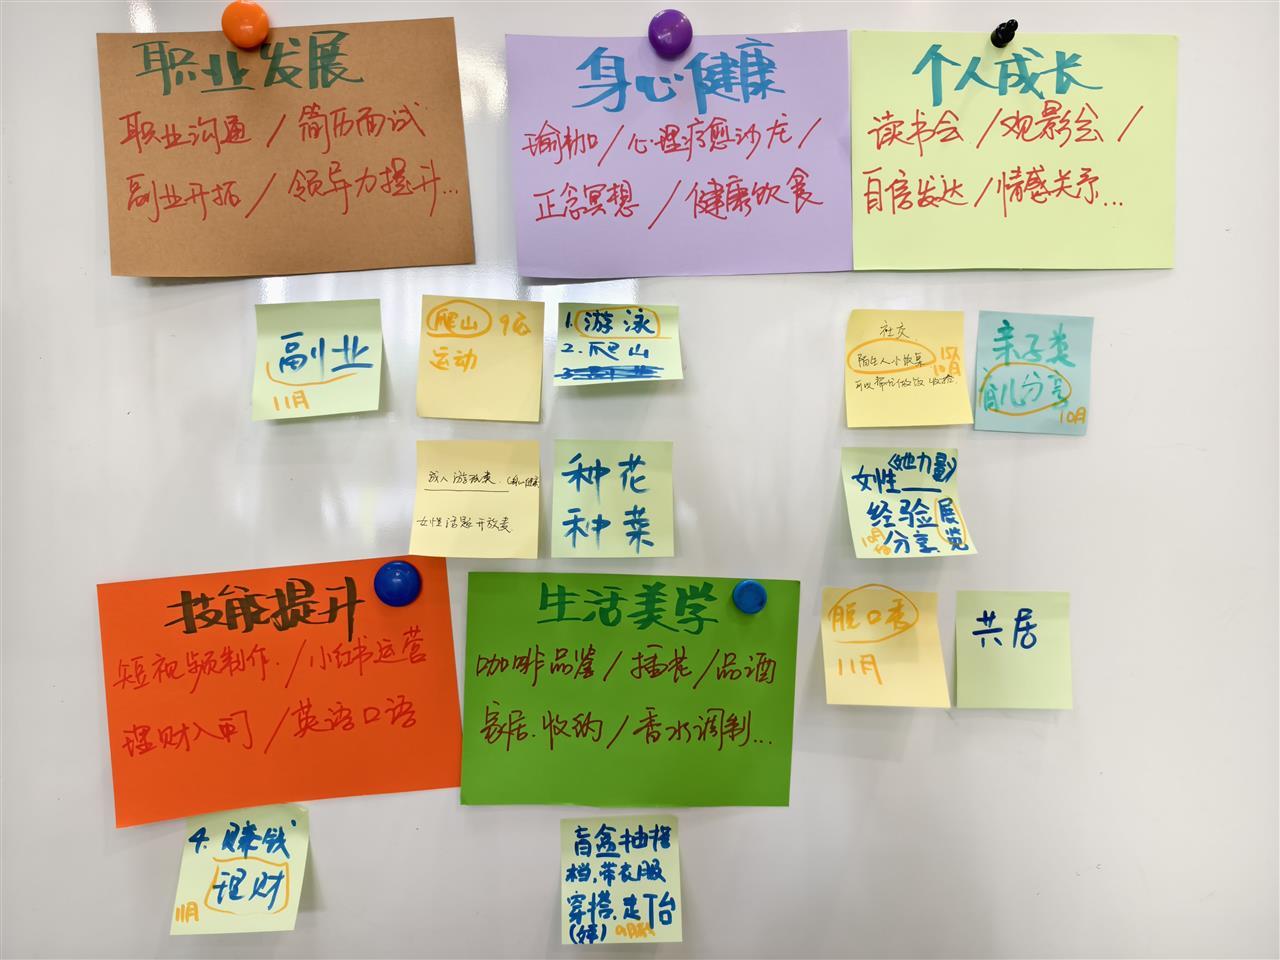 职业发展
职业沟通/简历面试
副业开拓/领导力提升...
身心健康
瑜伽/心理疗愈沙龙/
正念冥想/健康饮食
个人成长
读书会/观影会/
自信发达/情感关系...
副业
11月
爬山 9底
运动
1. 游泳
2. 爬山
社交
陌生人小饭桌
10月
亲子类
育儿分享
10月
成人游戏类
女性话题开放麦
种花
种菜
女性《她力量》
经验展览
分享
10月
脱口秀
11月
共居
技能提升
短视频制作/小红书运营
理财入门/英语口语
生活美学
咖啡品鉴/插花/品酒
家居收纳/香水调制...
4. 赚钱
理财
11月
盲盒抽搭
档,带衣服
穿搭,走T台